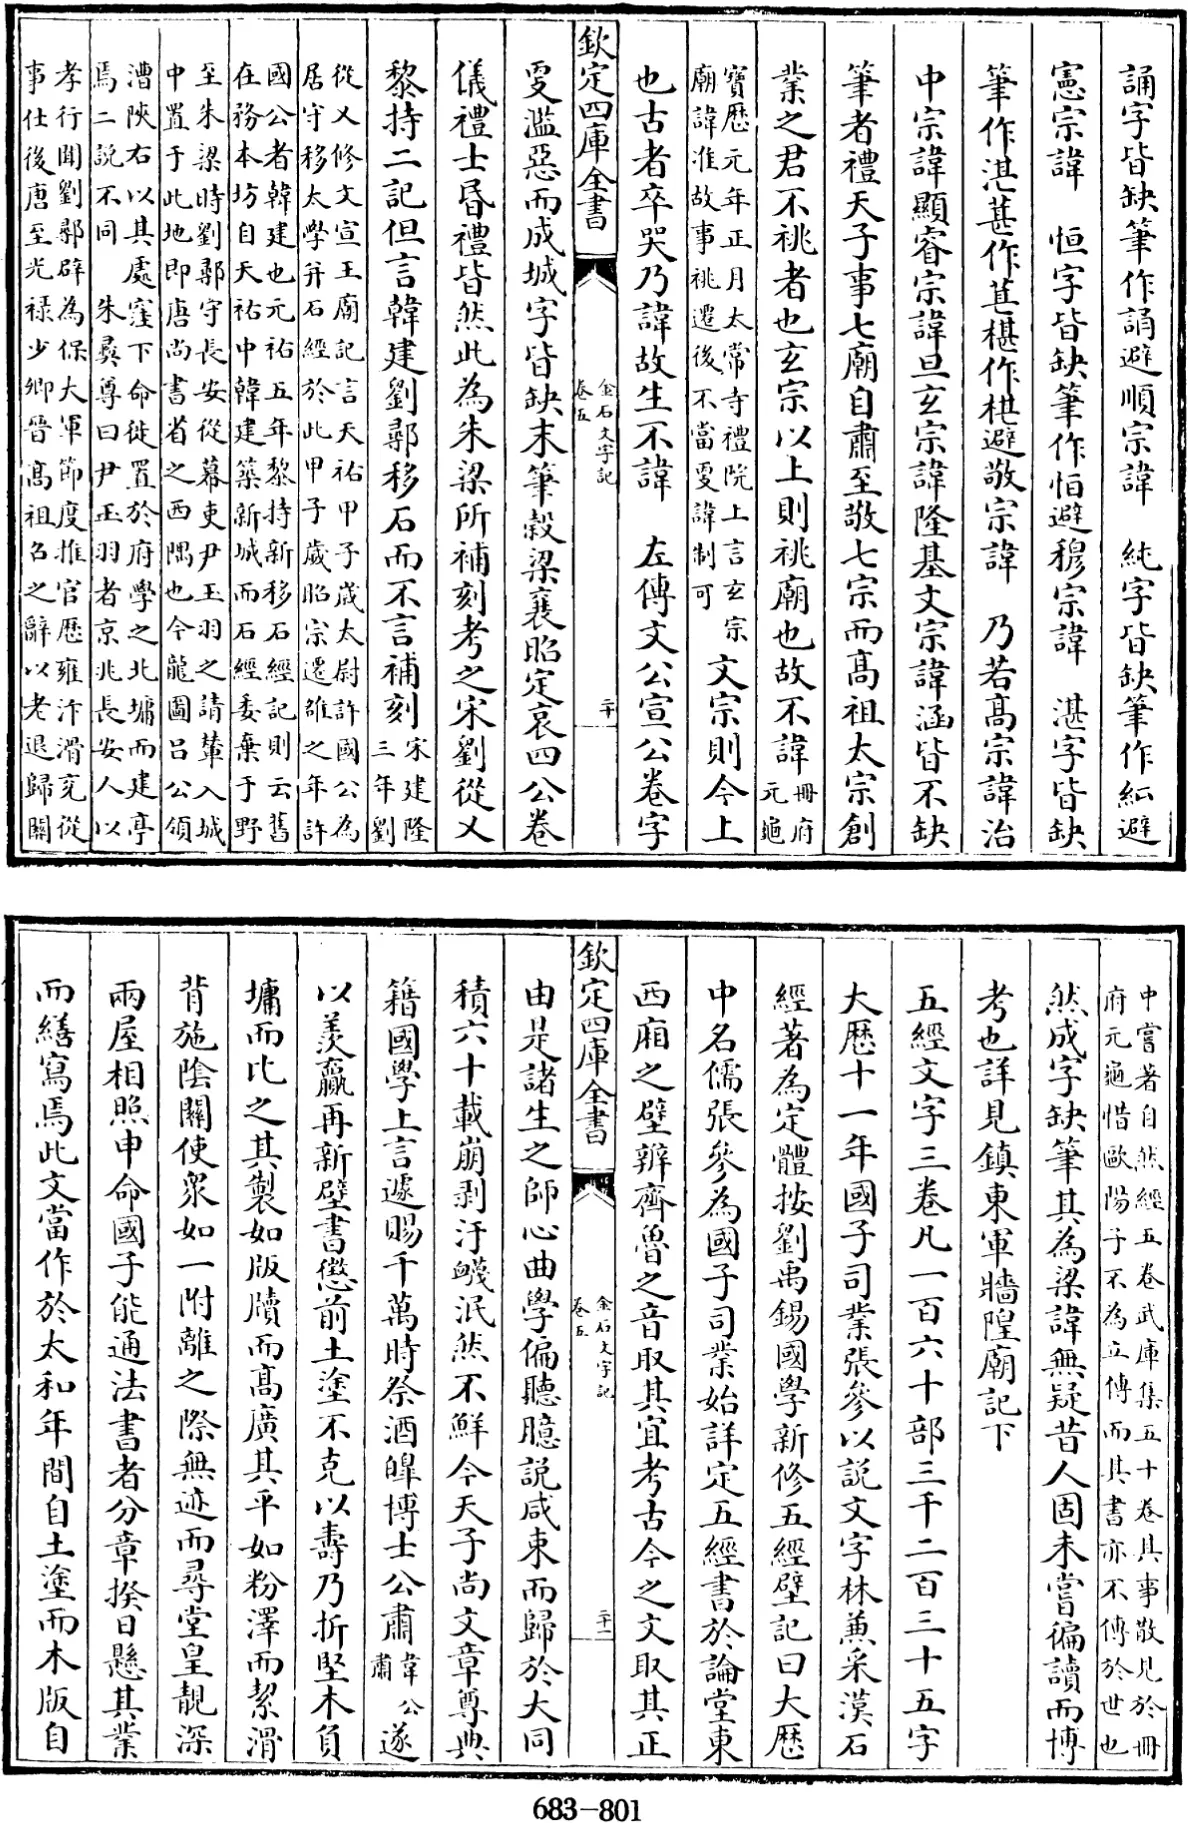 誦字皆缺筆作誦避順宗諱　純字皆缺筆作紃避
憲宗諱　恒字皆缺筆作恒避穆宗諱　湛字皆缺
筆作湛葚作葚椹作椹避敬宗諱　乃若高宗諱治
中宗諱顯睿宗諱旦玄宗諱隆基文宗諱涵皆不缺
筆者禮天子事七廟自肅至敬七宗而高祖太宗創
業之君不祧者也玄宗以上則祧廟也故不諱冊府元龜
寶歷元年正月太常寺禮院上言玄宗廟諱准故事祧遷後不當更諱制可文宗則今上
也古者卒哭乃諱故生不諱　左傳文公宣公卷字
欽定四庫全書　金石文字記卷五　二十
更濫惡而成城字皆缺末筆穀梁襄昭定哀四公卷
儀禮士昏禮皆然此為朱梁所補刻考之宋劉從乂
黎持二記但言韓建劉鄩移石而不言補刻宋建隆三年劉
從乂修文宣王廟記言天祐甲子歲太尉許國公為居守移太學并石經於此甲子歲昭宗遷雒之年許
國公者韓建也元祐五年黎持新移石經記則云舊在務本坊自天祐中韓建築新城而石經委棄于野
至朱梁時劉鄩守長安從幕吏尹玉羽之請輦入城中置于此地即唐尚書省之西隅也今龍圖呂公領
漕陝右以其處窪下命徙置於府學之北墉而建亭焉二說不同　朱彝尊曰尹玉羽者京兆長安人以
孝行聞劉鄩辟為保大軍節度推官歷雍汴滑兗從事仕後唐至光祿少卿晉高祖召之辭以老退歸關
中嘗著自然經五卷武庫集五十卷其事散見於冊府元龜惜歐陽子不為立傳而其書亦不傳於世也
然成字缺筆其為梁諱無疑昔人固未嘗徧讀而博
考也詳見鎮東軍牆隍廟記下
五經文字三卷凡一百六十部三千二百三十五字
大歷十一年國子司業張參以說文字林兼采漢石
經著為定體按劉禹錫國學新修五經壁記曰大歷
中名儒張參為國子司業始詳定五經書於論堂東
西廂之壁辨齊魯之音取其宜考古今之文取其正
欽定四庫全書　金石文字記卷五　二十一
由是諸生之師心曲學偏聽臆說咸束而歸於大同
積六十載崩剥汙衊泯然不鮮今天子尚文章尊典
籍國學上言遽賜千萬時祭酒皥博士公肅韋公肅遂
以羨贏再新壁書懲前土塗不克以壽乃折堅木負
墉而比之其製如版牘而高廣其平如粉澤而絜滑
背施陰關使眾如一附離之際無迹而尋堂皇靚深
兩屋相照申命國子能通法書者分章揆日懸其業
而繕寫焉此文當作於太和年間自土塗而木版自
683-801